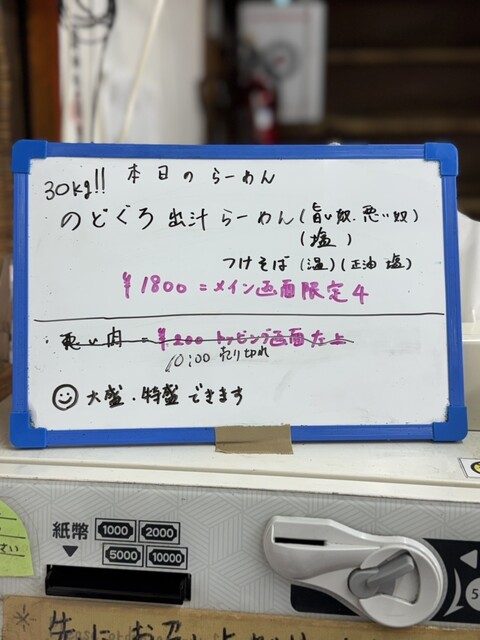 30kg!! 本日のらーめん
のどぐろ出汁らーめん(旨い奴、悪い奴)
(塩)
つけそば(温)(正油 塩)
¥1800=メイン画面限定4
悪い肉=¥200 トッピング画面左上
10:00 売り切れ
大盛・特盛できます
紙幣
1000 2000
5000 10000
さい
5
先に